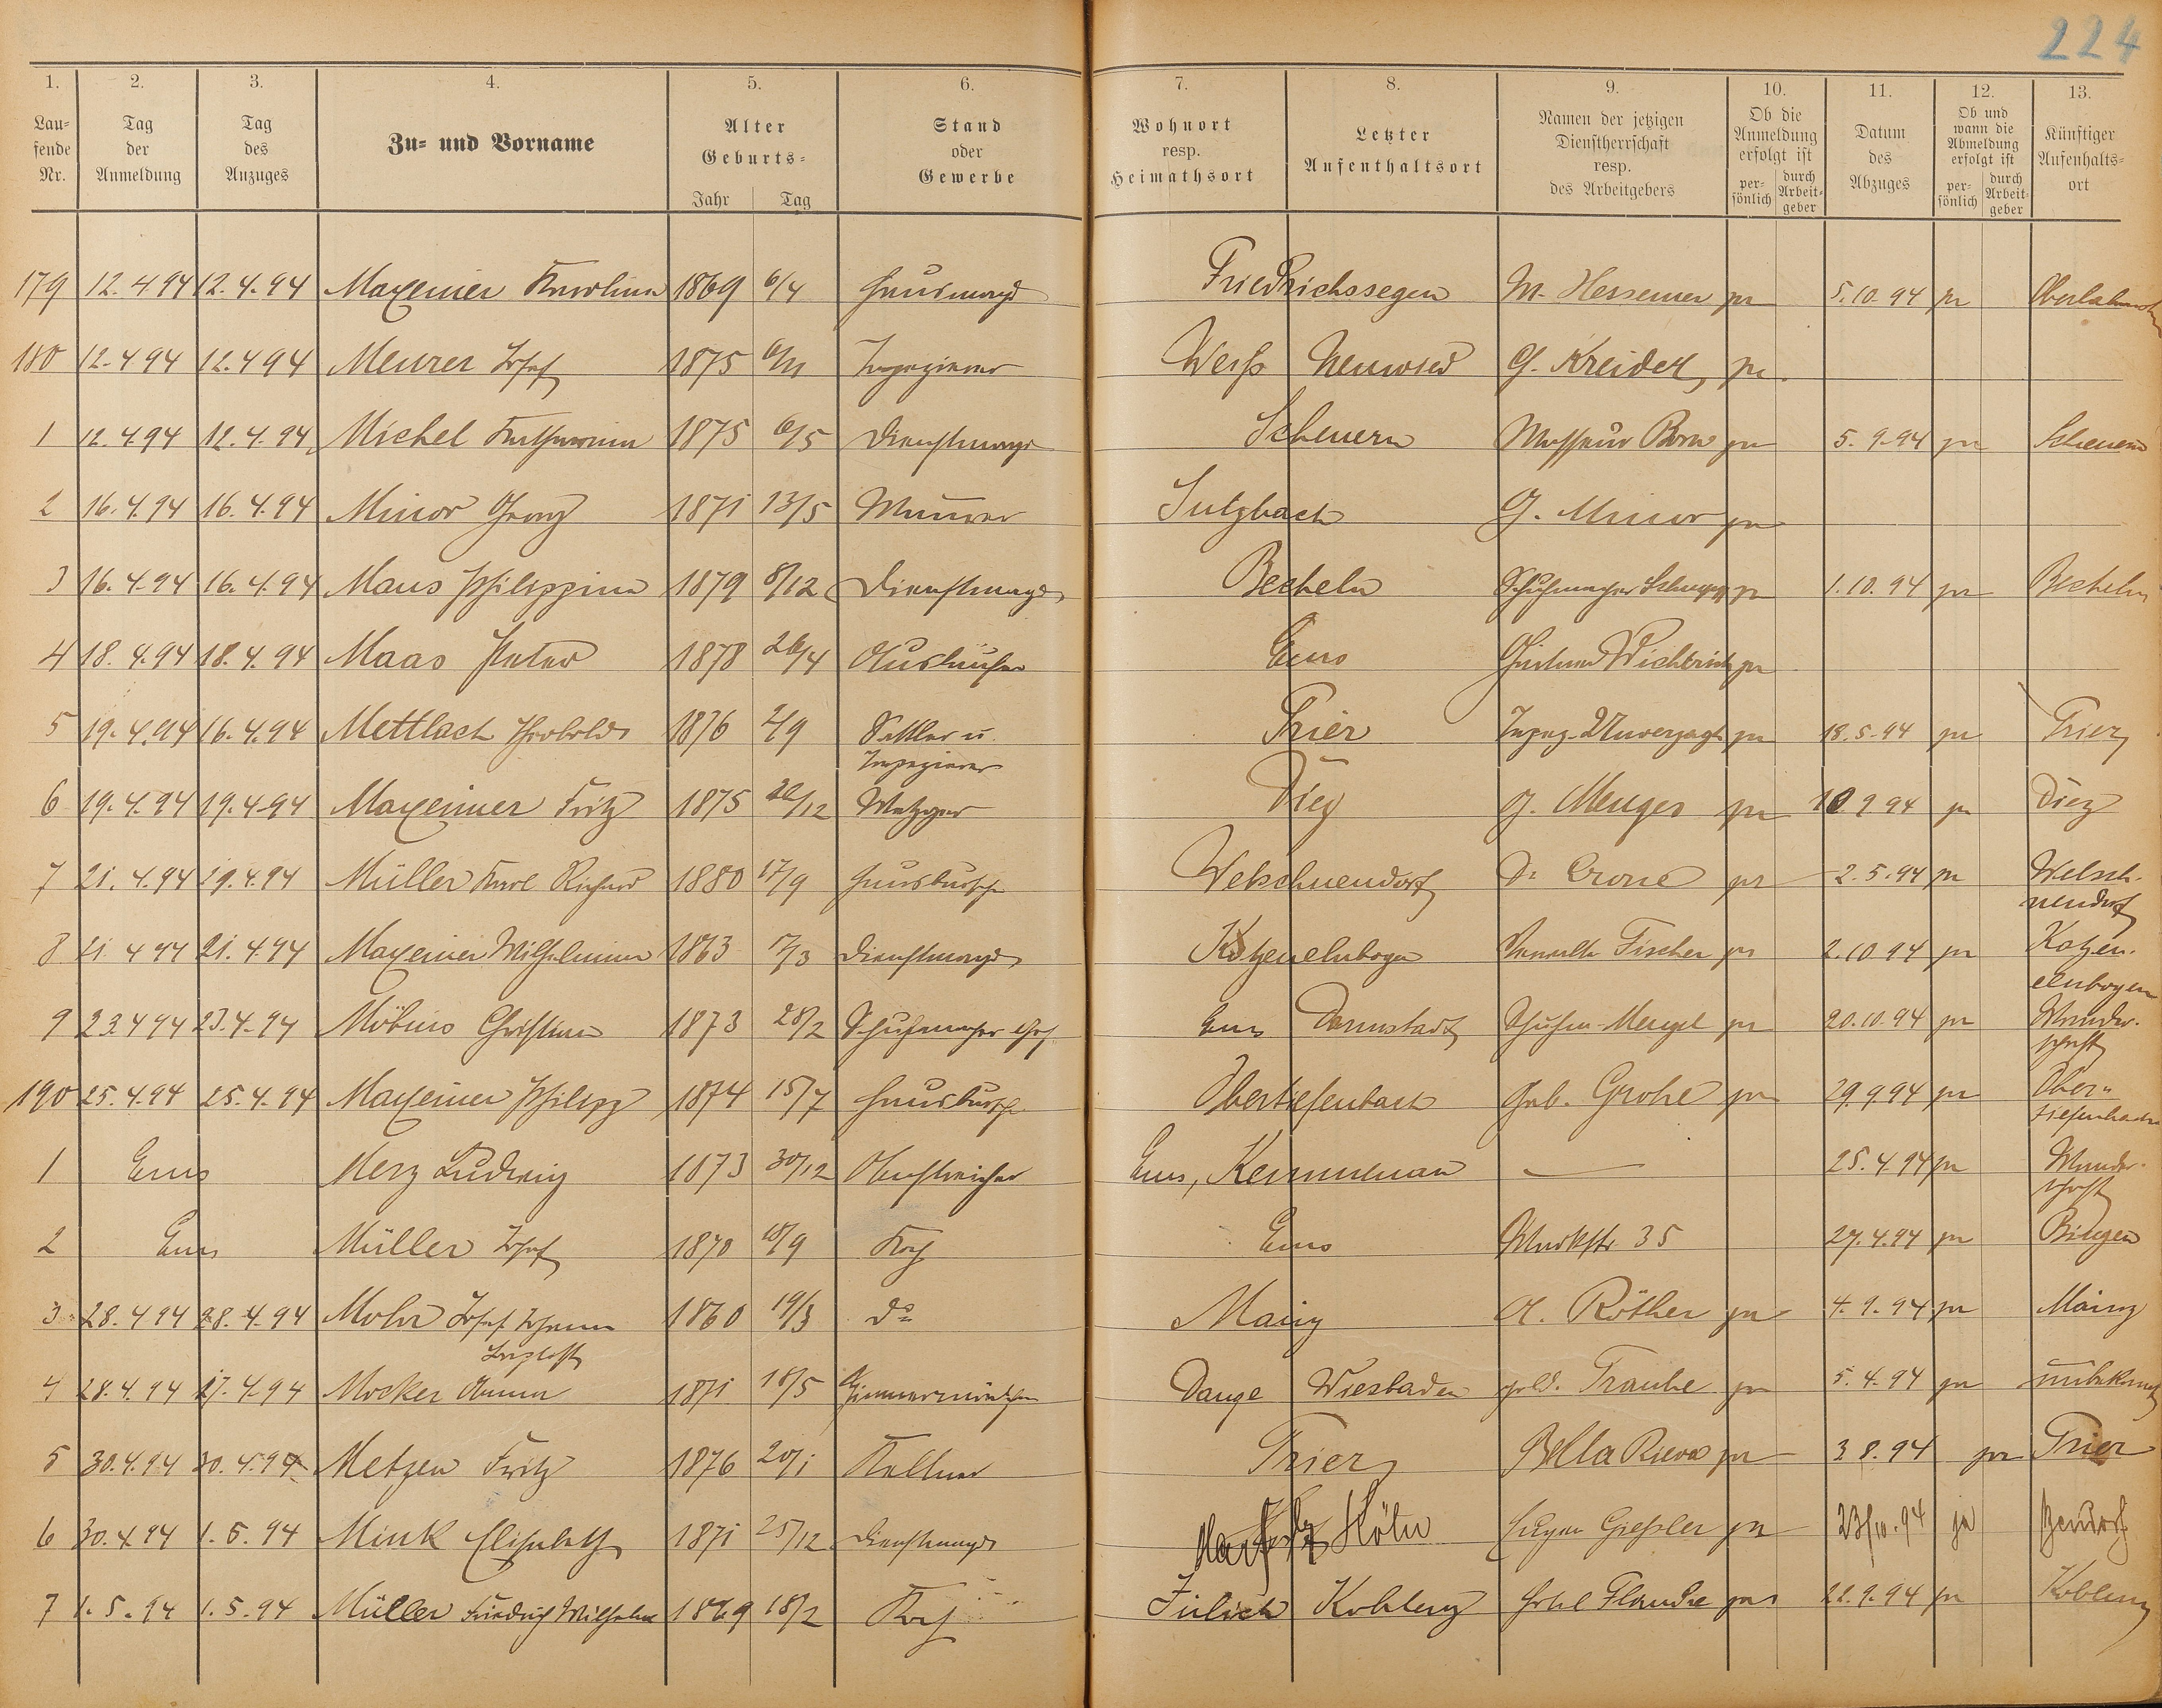 224
1. 2. 3. 4. 5. 6. 7. 8. 9. 10. 11. 12. 13.
Lau-
fende
Nr.
Tag
der
Anmeldung
Tag
des
Anzuges
Zu- und Vorname
Alter
Geburts-
Jahr Tag
Stand
oder
Gewerbe
Wohnort
resp.
Heimathsort
Letzter
Aufenthaltsort
Namen der jetzigen
Dienstherrschaft
resp.
des Arbeitgebers
Ob die
Anmeldung
erfolgt ist
per-
sönlich
durch
Arbeit-
geber
Datum
des
Abzuges
Ob und
wann die
Abmeldung
erfolgt ist
per-
sönlich
durch
Arbeit-
geber
Künftiger
Aufenhalts-
ort
179 12.4 94 12.4.94 Maxeiner Karoline 1869 6/4 Hausmagd Friedrichssegen M. Hessemer 5.10.94
180 12.4 94 12.4 94 Meurer Josef 1875 Tapezierer Weiß Neuwied G. Kreidel
1 12.4.94 12.4.94 Michel Katharina 1875 6/5 Dienstmagd Scheuern Masseur Born 5.9.94 Scheuern
2 16.4.94 16.4.94 Minor Georg 1871 13/5 Maurer Sulzbach G. Minor
3 16.4.94 16.4.94 Maus Philippine 1879 8/12 Dienstmagd Becheln Schuhmacher 1.10.94 Becheln
4 18.4.94 18.4.94 Maas Peter 1878 26/4 Ausläufer Ems
5 19.4.94 16.4.94 Mettlach 1876 2/9 Sattler u. Trier Tapez. Unverzagt 18.5.94 Trier
Tapezierer
6 19.4.94 19.4.94 Maxeiner Fritz 1875 Metzger Diez G. Menges 10.9 94 Diez
7 21.4.94 19.4.94 Müller Karl Richard 1880 17/9 Hausbursche Welschneudorf Dr Crone 2.5.94 Welsch-
neudorf
8 21 4 94 21.4.94 Maxeiner Wilhelmine 1863 Dienstmagd Katzenelnbogen Fischer 2.10 94 Katzen-
elnbogen
9 23 4 94 23.4.94 Möbius Christian 1873 28/2 Schuhmacher Ems Darmstadt Schuhm. Mengel 20.10.94 Wander-
schaft
190 25.4.94 25.4.94 Maxeiner Philipp 1874 15/7 Hausbursche Obertiefenbach Grohe 29.9.94 Ober-
tiefenbach
1 Ems Merz Ludwig 1873 30/12 Ems, Kemmenau — 25.4.94 Wander-
schaft
2 Ems Müller Josef 1870 18/9 Koch Ems Marktstr 35 27.4.94 Bingen
3 28.4 94 28.4.94 Mohr Josef Johann 1860 19/3 do Mainz A. Röther 4.9.94 Mainz
4 28.4.94 27.4.94 Mocker Anna 1871 18/5 Zimmermädchen Wiesbaden gold. Traube 5.4.94 unbekannt
5 30.4.94 30.4.94 Metzen Fritz 1876 20/1 Kellner Trier Bella Riva 3 8.94 Trier
6 30.4.94 1.5.94 Mink Elisabeth 1871 25/12 Dienstmagd Köln Gießler 23/10.94 ja Bendorf
7 1.5.94 1.5.94 Müller Friedrich Wilhelm 1869 18/2 Koch Jülich Koblenz Hotel Flandre 22.9.94 Koblenz